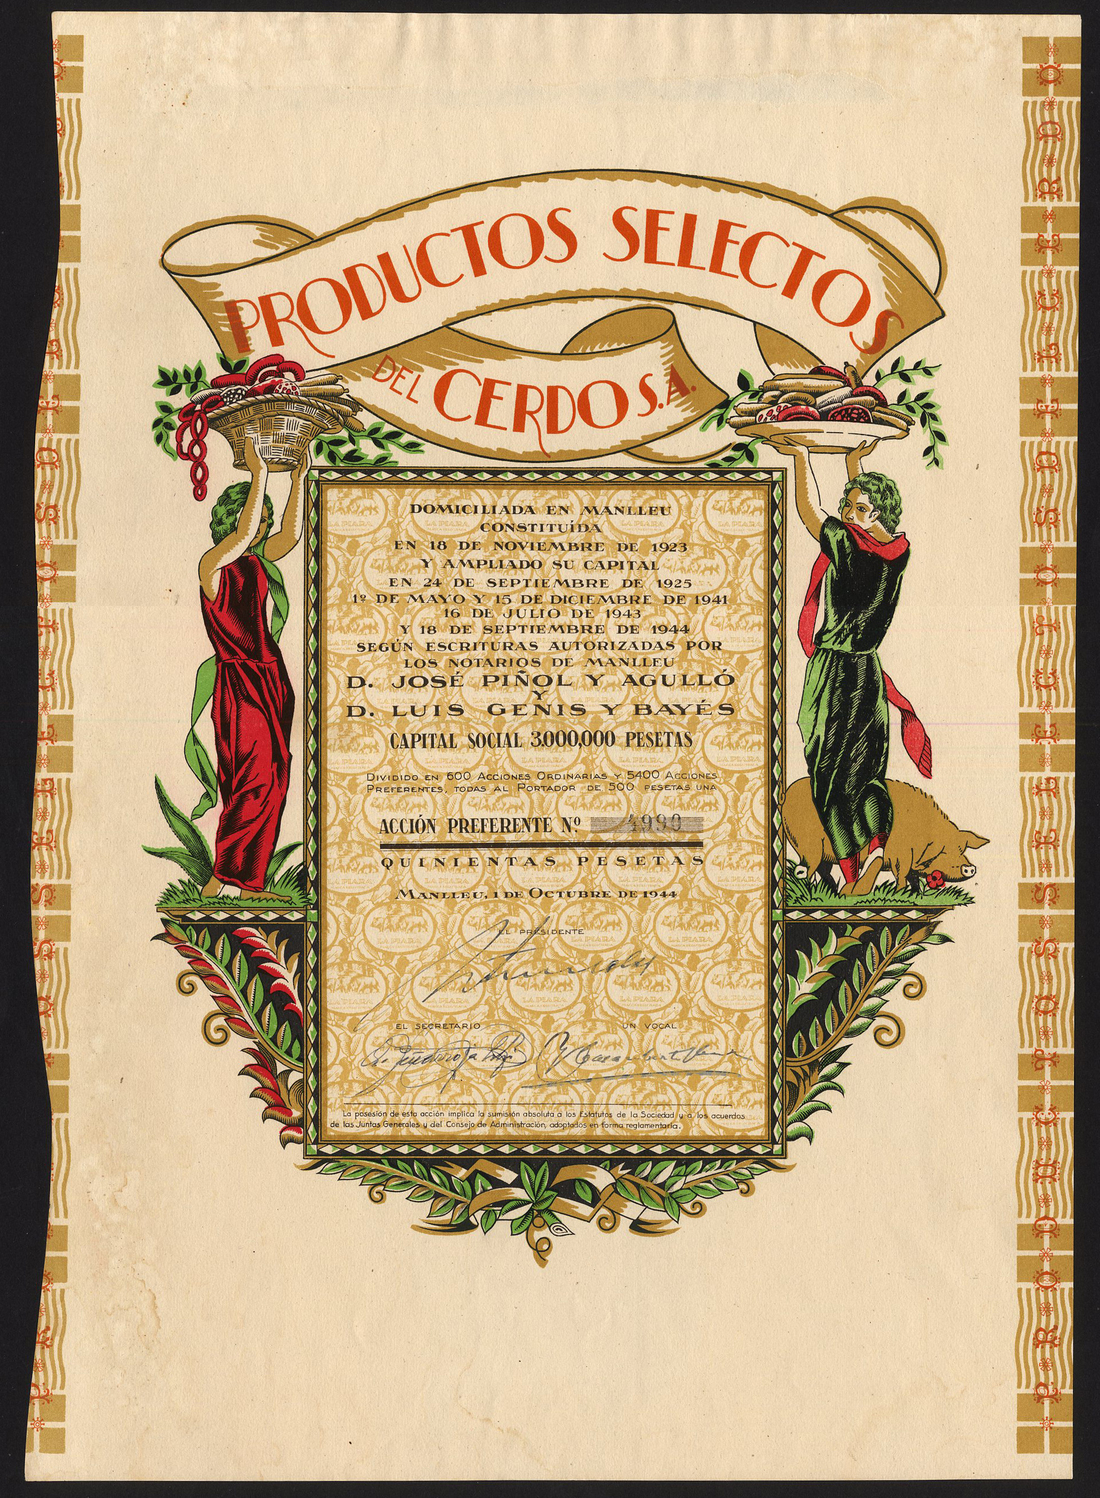 PRODUCTOS SELECTOS
DEL CERDO S.A.
DOMICILIADA EN MANLLEU
CONSTITUÍDA
EN 18 DE NOVIEMBRE DE 1923
Y AMPLIADO SU CAPITAL
EN 24 DE SEPTIEMBRE DE 1925
1º DE MAYO Y 15 DE DICIEMBRE DE 1941
16 DE JULIO DE 1943
Y 18 DE SEPTIEMBRE DE 1944
SEGÚN ESCRITURAS AUTORIZADAS POR
LOS NOTARIOS DE MANLLEU
D. JOSÉ PIÑOL Y AGULLÓ
Y
D. LUIS GENIS Y BAYÉS
CAPITAL SOCIAL 3.000,000 PESETAS
DIVIDIDO EN 600 ACCIONES ORDINARIAS Y 5400 ACCIONES
PREFERENTES, TODAS AL PORTADOR DE 500 PESETAS UNA
ACCIÓN PREFERENTE N.º 4990
QUINIENTAS PESETAS
MANLLEU, 1 DE OCTUBRE DE 1944
EL PRESIDENTE
EL SECRETARIO UN VOCAL
La posesión de esta acción implica la sumisión absoluta a los Estatutos de la Sociedad y a los acuerdos
de las Juntas Generales y del Consejo de Administración, adoptados en forma reglamentaria.
PRODUCTOS SELECTOS DEL CERDO
LA PIARA